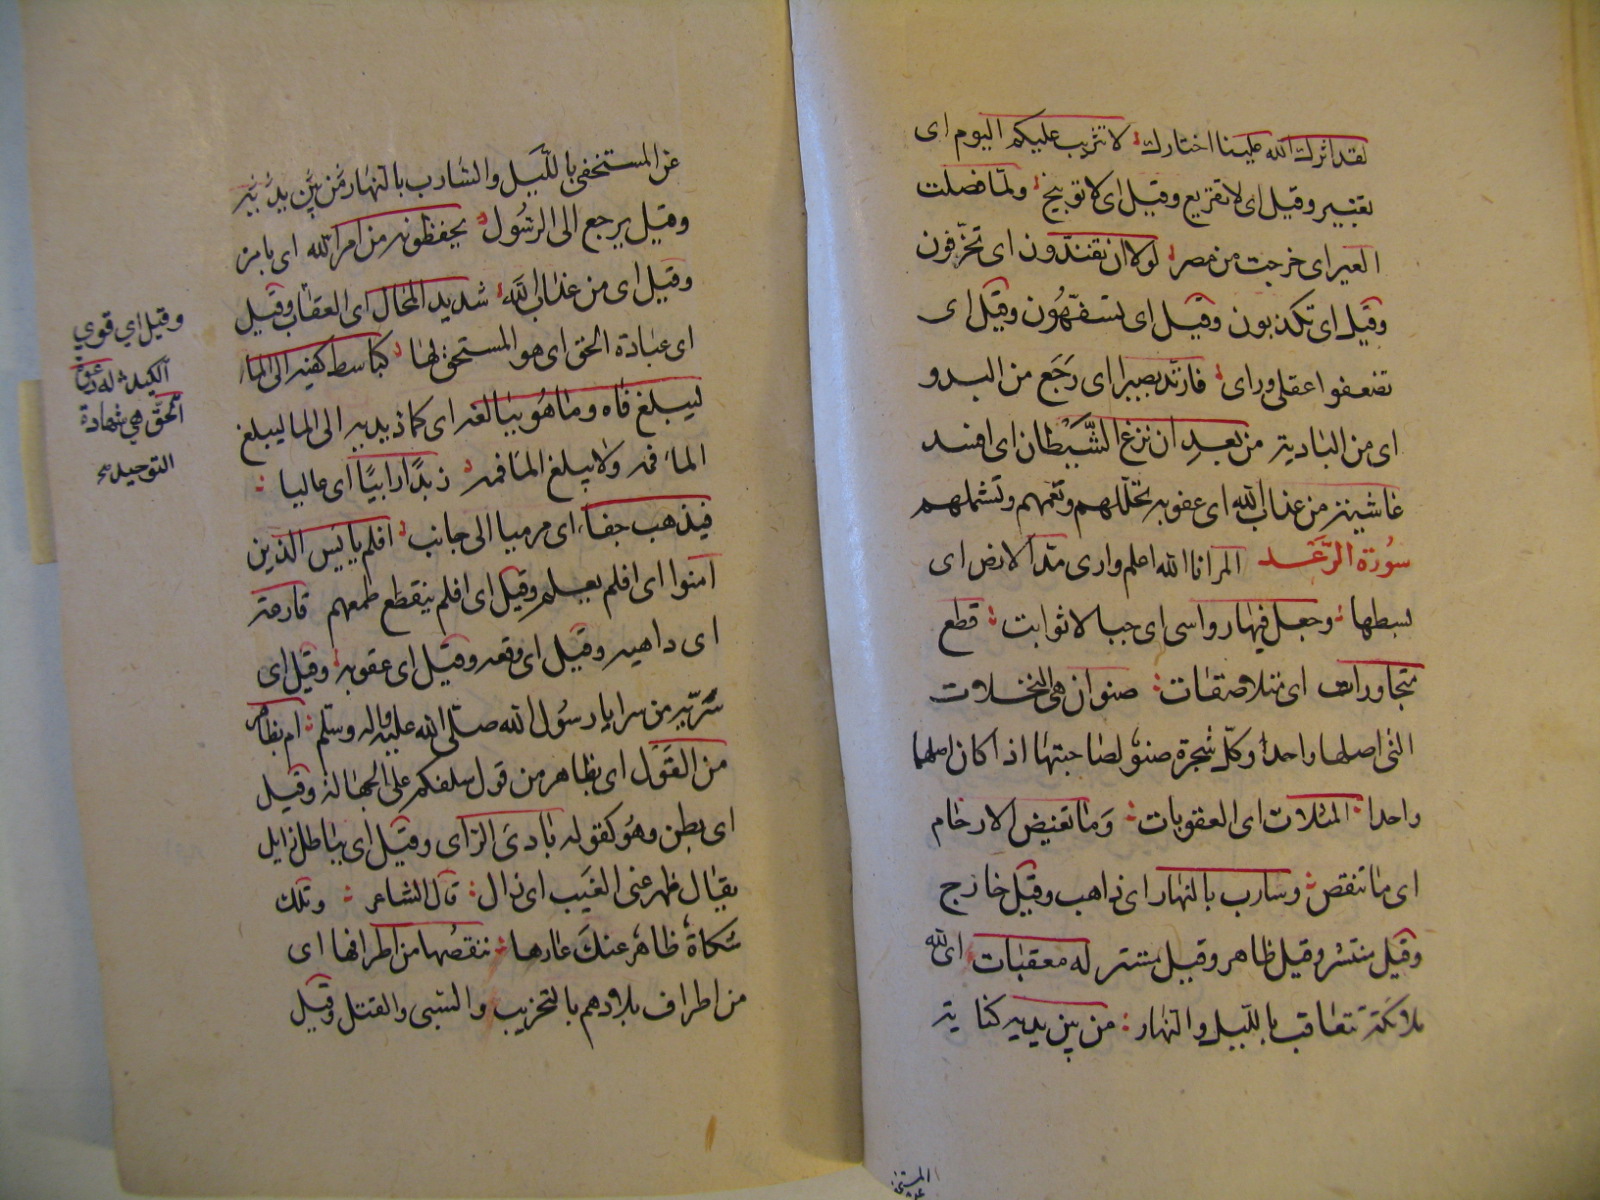 لقد اثرك الله علينا اى اختارك لا تثريب عليكم اليوم اى
تعيير وقيل اى لا تقريع وقيل اى لا توبيخ ولما فصلت
العير اى خرجت من مصر لولا ان تفندون اى تخرّفون
وقيل اى تكذبون وقيل اى تسفّهون وقيل اى
تضعفوا عقلى وراى فارتد بصيرا اى رَجَع من البدو
اى من البادية من بعد ان نزغ الشّيطان اى افسد
غاشية من عذاب الله اى عقوبه تخللهم وتعمهم وتشملهم
سُورة الرّعد المر انا الله اعلم وارى مدّ الارض اى
بسطها وجعل فيها رواسى اى جبالا ثوابت قطع
متجاورات اى متلاصقات صنوان هى النخلات
التى اصلها واحد وكلّ شجرة صنو لصاحبتها اذا كان اصلهما
واحدا المثلات اى العقوبات وَما تغيض الارحام
اى ما تنقص وسارب بالنهار اى ذاهب وقيل خارج
وقيل منتشر وقيل ظاهر وقيل مستتر له معقبات اى لله
ملائكة تتعاقب بالليل والنهار من بين يديه كناية
المستخفى
عن المستخفى بالليل والسارب بالنهار من بين يديه
وقيل يرجع الى الرسُول يحفظونه من امر الله اى بامره
وقيل اى من عذاب الله شديد المحال اى العقاب وقيل
اى عبادة الحق اى هو المستحق لها كباسط كفيه الى الماء
ليبلغ فاه وما هُو ببالغه اى كماد يديه الى الما ليبلغ
الماء فمه ولا يبلغ الما فمه زبدًا رابيًا اى عاليا
فيذهب جفاء اى مرميا الى جانب افلم يايئس الذين
امنوا اى افلم يعلم وقيل اى افلم ينقطع طمعهم قارعة
اى داهيه وقيل اى وقعه وقيل اى عقوبه وقيل اى
سَريّة من سرايا رسُول الله صلّى الله عليه واله وسلم ام بظاهر
من القَول اى بظاهر من قول سلفكم على الجهالة وقيل
اى بطن وهُو كقوله بادىَ الراى وقيل اى بباطل زايل
يقال ظهر عنى العَيب اى زال قال الشاعر وتلك
شكاة ظاهر عنكَ عارها ننقصُها من اطرافها اى
من اطراف بلادهم بالتخريب والسّبى والقتل وقيل
وقيل اي قوي
الكيد له دعوة
الحقّ هي شهادة
التوحيد